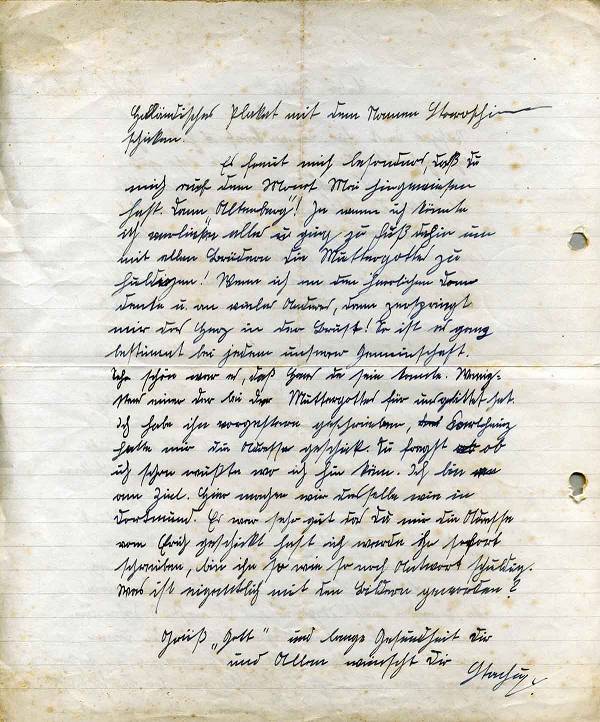 Holländisches Plakat mit dem Namen
schicken.
Es freut mich besonders, daß Du
mich auf dem Monat Mai hingewiesen
hast. Dann „Altenberg"! Ja wenn ich könnte
ich verließe alles u ging zu Fuß dahin um
mit allen Brüdern die Muttergottes zu
huldigen! Wenn ich an den herrlichen Dom
denke u. an vieles Andere, dann zerspringt
mir das Herz in der Brust! So ist es ganz
bestimmt bei jedem unserer Gemeinschaft.
Sehr schön war es, daß Hans da sein konnte. Wenig-
stens einer der bei der Muttergottes für uns gebittet hat.
Ich habe ihn vorgestern geschrieben, Karlheinz
hatte mir die Adresse geschickt. Du fragst ob
ich schon wüßte wo ich hin käm. Ich bin
am Ziel. Hier machen wir dasselbe wie in
Dortmund. Es war sehr gut das Du mir die Adresse
vom Erich geschickt hast ich werde ihn sofort
schreiben, bin ihn so wie so noch Antwort schuldig.
Was ist eigentlich mit den Bildern geworden?
Grüß „Gott" und lange Gesundheit Dir
und Allen wünscht Dir